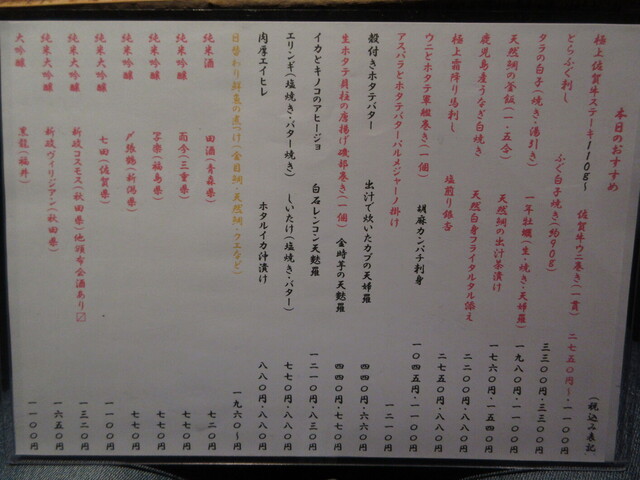 本日のおすすめ
(税込み表記
極上佐賀牛ステーキ110g〜 佐賀牛ウニ巻き(一貫) 二七五〇円〜・一一〇〇円
とらふぐ刺し ふぐ白子焼き(約90g) 三三〇〇円・三三〇〇円
タラの白子(焼き・湯引き) 一年牡蠣(生・焼き・天婦羅) 一九八〇円・一一〇〇円
天然鯛の釜飯(一・五合) 天然鯛の出汁茶漬け 一七六〇円・一五四〇円
鹿児島産うなぎ白焼き 天然白身フライタルタル添え 二二〇〇円・八八〇円
極上霜降り馬刺し 塩煎り銀杏 二七五〇円・八八〇円
ウニとホタテ軍艦巻き(一個) 胡麻カンパチ刺身 一〇四五円・一一〇〇円
アスパラとホタテバターパルメジャーノ掛け 一二一〇円
殻付きホタテバター 出汁で炊いたカブの天婦羅 四四〇円・六六〇円
生ホタテ貝柱の唐揚げ磯辺巻き(一個) 金時芋の天麩羅 四四〇円・七七〇円
イカとキノコのアヒージョ 白石レンコン天麩羅 一二一〇円・八三〇円
エリンギ(塩焼き・バター焼き) しいたけ(塩焼き・バター) 七七〇円・七七〇円
肉厚エイヒレ ホタルイカ沖漬け 八八〇円・八八〇円
日替わり鮮魚の煮つけ(金目鯛・天然鯛・クエなど) 一九六〇〜円
純米酒 田酒(青森県) 七二〇円
純米吟醸 而今(三重県) 八八〇円
純米吟醸 写楽(福島県) 七七〇円
純米吟醸 〆張鶴(新潟県) 七七〇円
純米大吟醸 七田(佐賀県) 一一〇〇円
純米大吟醸 新政コスモス(秋田県)他頒布会酒あり〼 一三二〇円
純米大吟醸 新政ヴィリジアン(秋田県) 一六五〇円
大吟醸 黒龍(福井) 一一〇〇円